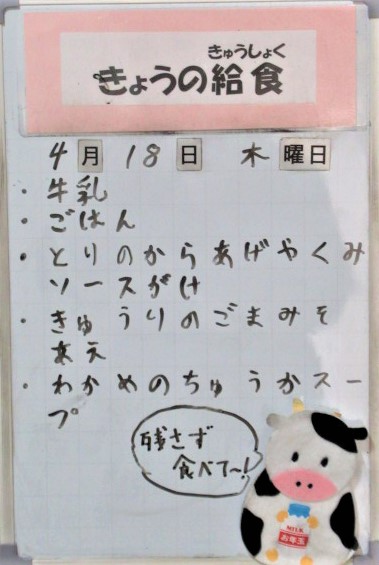 きゅうしょく
きょうの給食
4月18日 木曜日
・牛乳
・ごはん
・とりのからあげやくみ
ソースがけ
・きゅうりのごまみそ
あえ
・わかめのちゅうかスー
プ
残さず
食べて〜!
MILK
お年玉